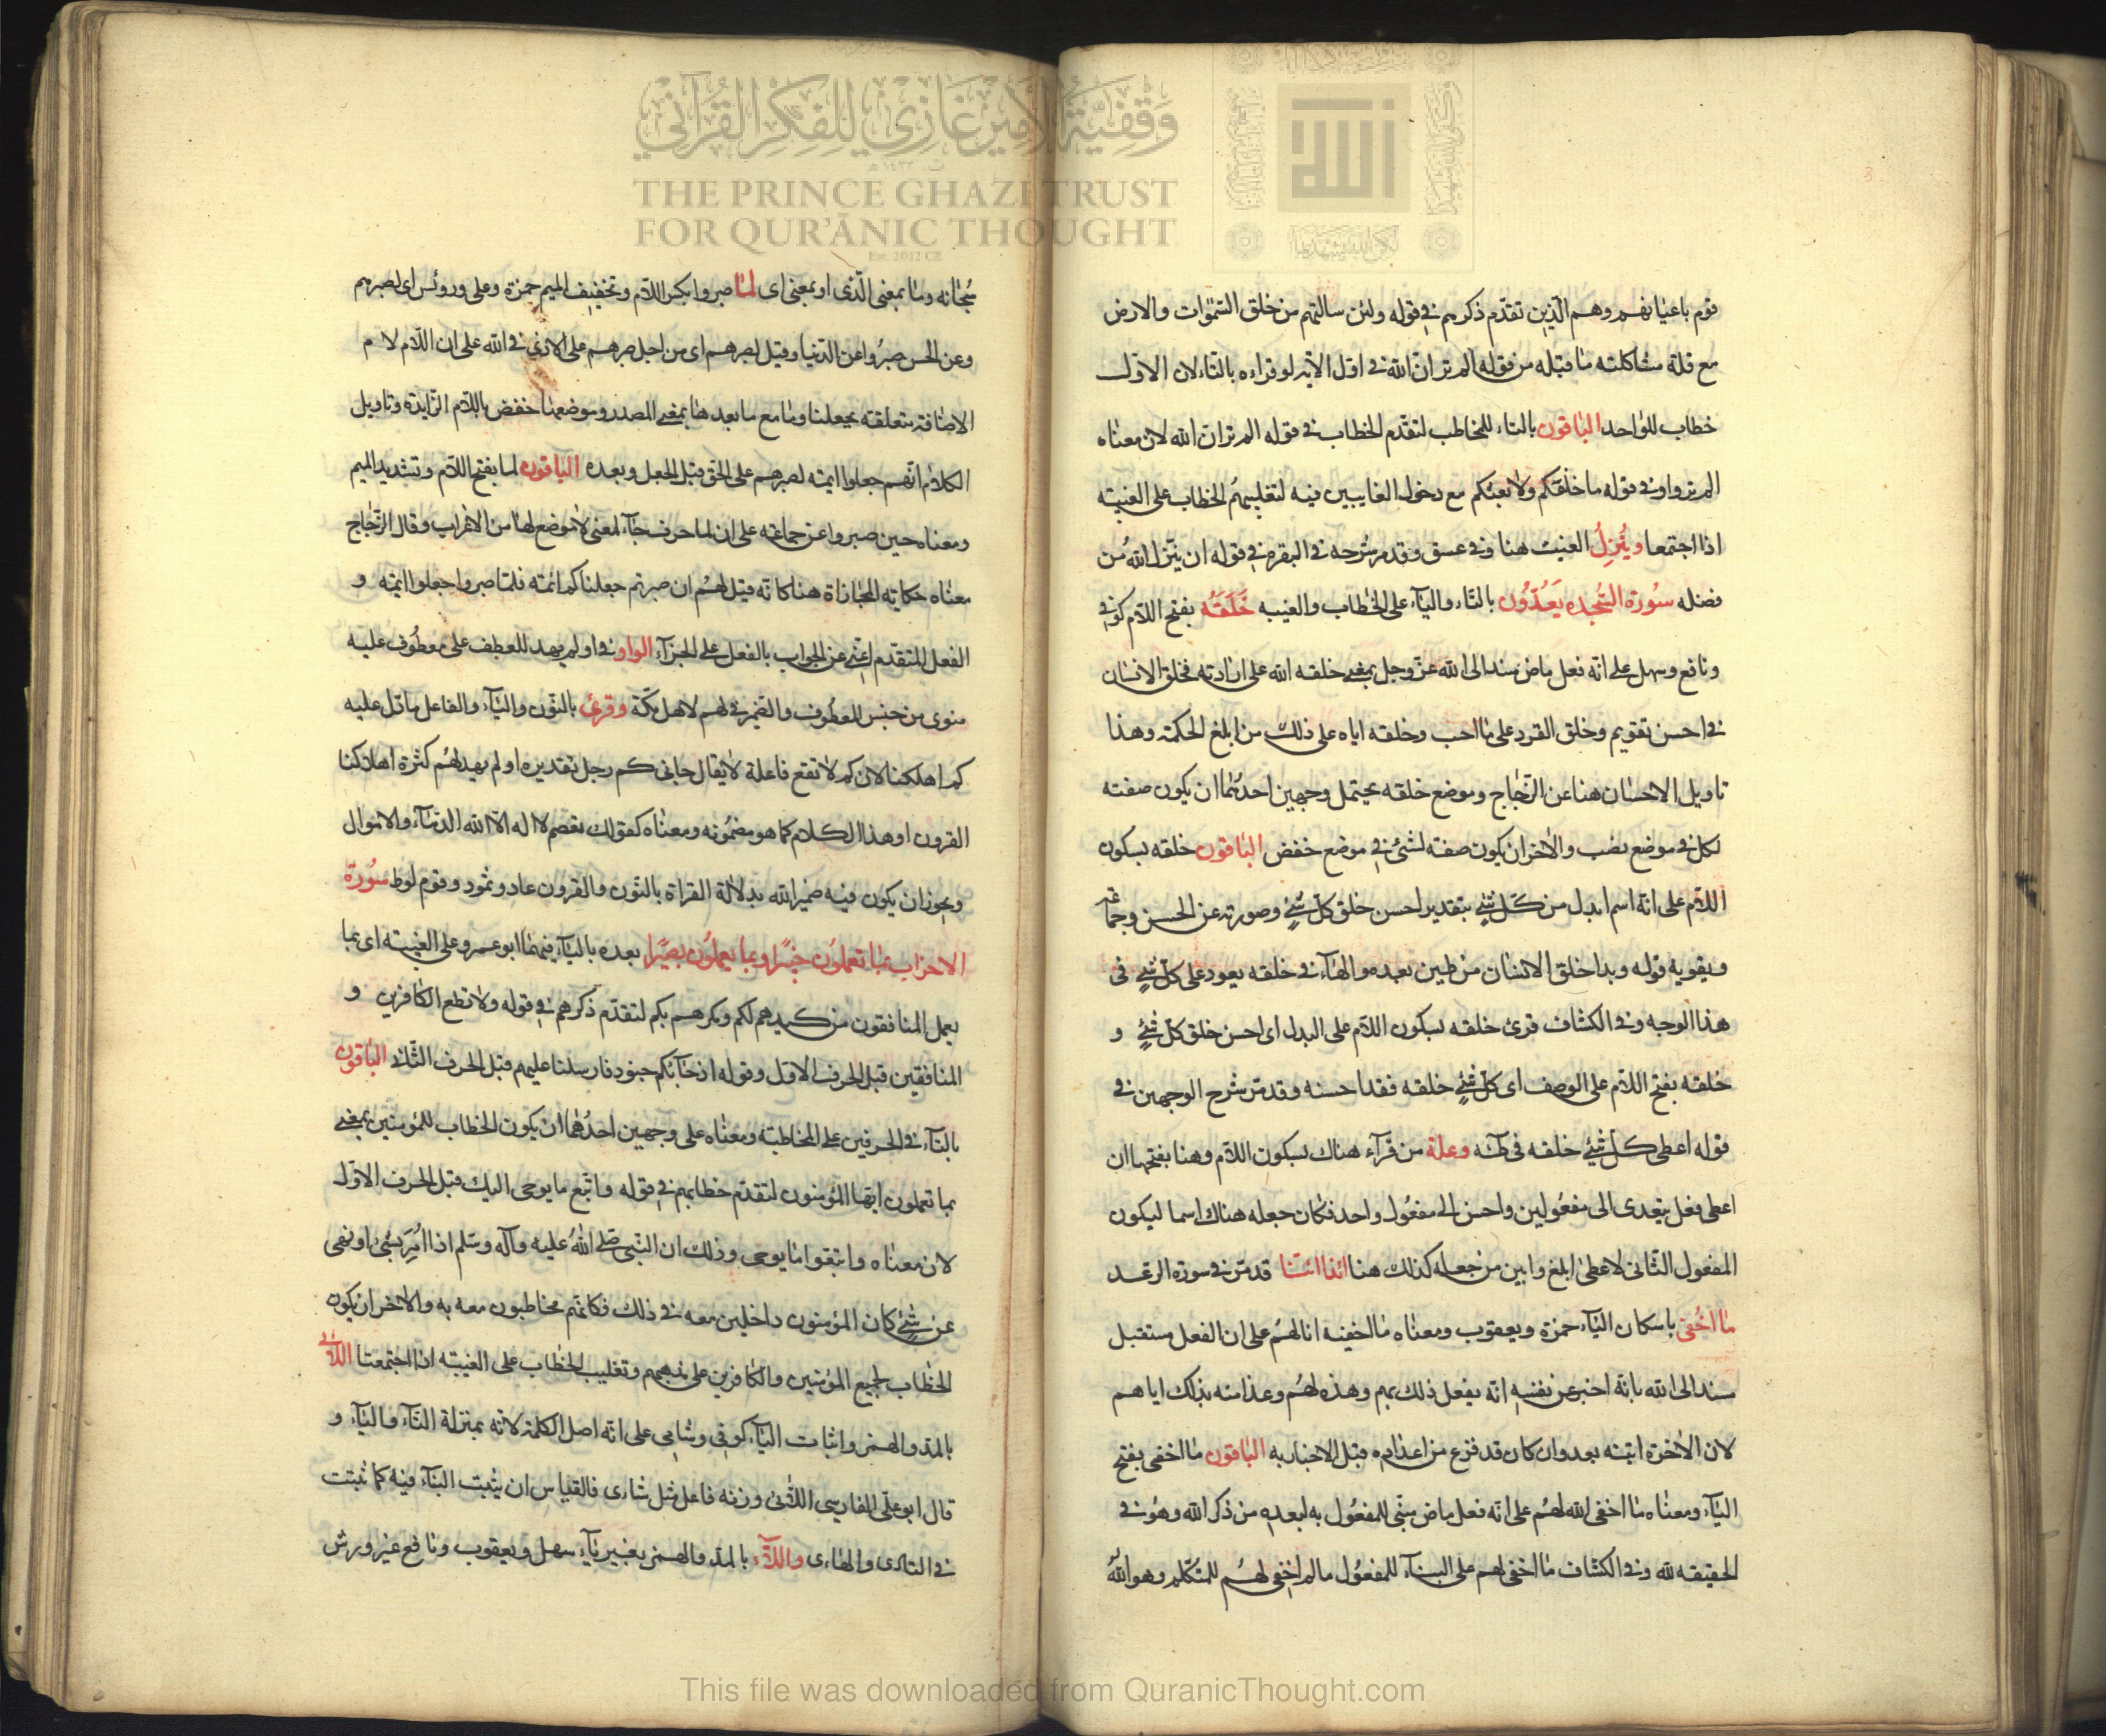 وقفية الأمير غازي للفكر القرآني
THE PRINCE GHAZI TRUST
FOR QUR'ĀNIC THOUGHT
Est. 2012 CE
الله
قوم باعيانهم وهم الذين تقدّم ذكرهم في قوله ولئن سالتهم من خلق السّمٰوات والارض
مع قلة مشاكلته ما قبله من قوله الم تر انّ الله في اوّل الآية لو قراءه بالتاء لان الاوّل
خطاب للواحد الباقون بالتاء للمخاطب لتقدّم الخطاب في قوله الم تر ان الله لان معناه
الم تروا وفي قوله ما خلقكم ولا بعثكم مع دخول الغايبين فيه لتغليبهم الخطاب على الغيبة
اذا اجتمعا وينزل الغيث هنا وفي عسق وقد مر شرحه في البقرة في قوله ان ينزل الله من
فضله سورة السّجده يعدّون بالتاء والياء على الخطاب والغيبه خلقه بفتح اللام كوفي
ونافع وسهل على انّه فعل ماض مسند الى الله عزّ وجل بمعنى خلقه الله على ارادته فخلق الانسان
في احسن تقويم وخلق القرد على ما احب وخلقه اياه على ذلك من ابلغ الحكمة وهذا
تاويل الاحسان هنا عن الزّجاج وموضع خلقه يحتمل وجهين احدهما ان يكون صفته
لكل في موضع نصب والآخر ان يكون صفته لشئ في موضع خفض الباقون خلقه بسكون
اللّام على انّه اسم ابدل من كلّ شئ بتقدير احسن خلق كلّ شئ وصورته عن الحسن وجماعة
ويقويه قوله وبدا خلق الانسان من طين بعده والهاء في خلقه يعود على كلّ شئ في
هذا الوجه وفي الكشاف قرئ خلقه بسكون اللام على البدل اى احسن خلق كلّ شئ و
خلقه بفتح اللام على الوصف اى كلّ شئ خلقه فقد احسنه وقد مرّ شرح الوجهين في
قوله اعطى كلّ شئ خلقه في طه وعلة من قرآء هناك بسكون اللام وهنا بفتحها ان
اعطى فعل يتعدى الى مفعولين واحسن الى مفعول واحد فكان جعله هناك اسما ليكون
المفعول الثّانى لاعطى ابلغ وابين من جعله كذلك هنا ائذا ائنا قد مرّ في سورة الرعد
ما اخفى باسكان الياء حمزة ويعقوب ومعناه ما اخفيه انا لهم على ان الفعل مستقبل
مسند الى الله بانّه اخبر عن نفسه انّه يفعل ذلك بهم وهذه لهم وعدا منه بذلك اياهم
لان الآخرة اتيته بعد وان كان قد فزع من اعدادها قبل الاخبار به الباقون ما اخفى بفتح
الياء ومعناه ما اخفى الله لهم على انّه فعل ماض مبنى للمفعول به لبعده من ذكر الله وهو في
الحقيقه لله وفي الكشاف ما اخفى لهم على البناء للمفعول ما لم اخفى لهم للمتكلم وهو الله
سبحانه وما بمعنى الّذى او بمعنى اى لما صبروا بكسر اللام وتخفيف الميم حمزة وعلى ورويس اى لصبرهم
وعن الحسن صبروا عن الدّنيا وقيل لصبرهم اى من اجل صبرهم على الاذى في الله على ان اللّام لام
الاضافة متعلقته بجعلنا وما مع ما بعدها بمعنى المصدر وموضعها خفض باللّام الزّايدة وتاويل
الكلام انّهم جعلوا ايمته لصبرهم على الحق قبل الجعل وبعده الباقون لما بفتح اللام وتشديد الميم
ومعناه حين صبروا عن جماعته على ان لما حرف جاء لمعنى لا موضع لها من الاعراب وقال الزّجاج
معناه حكاية المجازاة هنا كانّه قيل لهم ان صبرتم جعلناكم ائمته فلمّا صبروا جعلوا ايمته و
الفعل المتقدم اغنى عن الجواب بالفعل على الجزاء الواو في اولم يهد للعطف على معطوف عليه
منوى من جنس المعطوف والضمير في لهم لاهل مكّة وقرئ بالنون والياء والفاعل ما دل عليه
كم اهلكنا لان كم لا تقع فاعلة لا يقال جانى كم رجل تقديره اولم يهد لهم كثرة اهلاكنا
القرون او هذا الكلام كما هو مضمونه ومعناه كقولك يعصم لا اله الّا الله الدّماء والاموال
ويجوز ان يكون فيه ضمير الله بدلالة القراة بالنون والقرون عاد وثمود وقوم لوط سورة
الاحزاب بما تعملون خبيرا وبما يعملون بصيرا بعده بالياء فيهما ابو عمرو على الغيبته اى بما
يعمل المنافقون من كيدهم لكم ومكرهم بكم لتقدّم ذكرهم في قوله ولا تطع الكافرين و
المنافقين قبل الحرف الاول وقوله اذ جاءتكم جنود فارسلنا عليهم قبل الحرف الثّانى الباقون
بالتاء في الحرفين على المخاطبته ومعناه على وجهين احدهما ان يكون الخطاب للمؤمنين بمعنى
بما تعملون ايها المؤمنون لتقدّم خطابهم في قوله واتبع ما يوحى اليك قبل الحرف الاوّل
لان معناه واتبعوا ما يوحى وذلك ان النّبى صلى الله عليه وآله وسلم اذا امر بشئ او نهى
عن شئ كان المؤمنون داخلين معه في ذلك فكانّهم مخاطبون معه به والآخر ان يكون
الخطاب لجميع المؤمنين والكافرين على مذهبهم وتغليب الخطاب على الغيبته اذا اجتمعتا اللائى
بالمد والهمز واثبات الياء كوفى وشامى على انّه اصل الكلمة لانّه بمنزلة التاء والياء و
قال ابو على الفارسى اللّائى وزنه فاعل مثل شاءى فالقياس ان يثبت الياء فيه كما ثبتت
في النادى والهاءى واللاء بالمد والهمز بغير ياء سهل ويعقوب ونافع غير ورش
This file was downloaded from QuranicThought.com